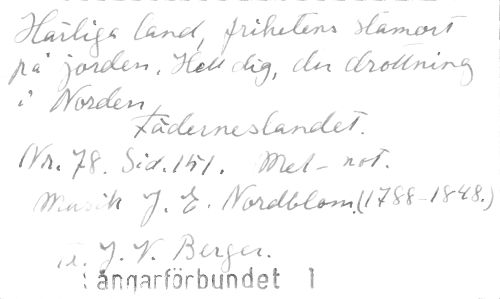 Härliga land, frihetens stamort
på jorden. Hell dig, du drottning
i Norden,
Fäderneslandet.
Nr. 78. Sid. 151. Mel-not.
Musik J. E. Nordblom (1788-1848.)
Te. J. N. Berger.
ångarförbundet 1